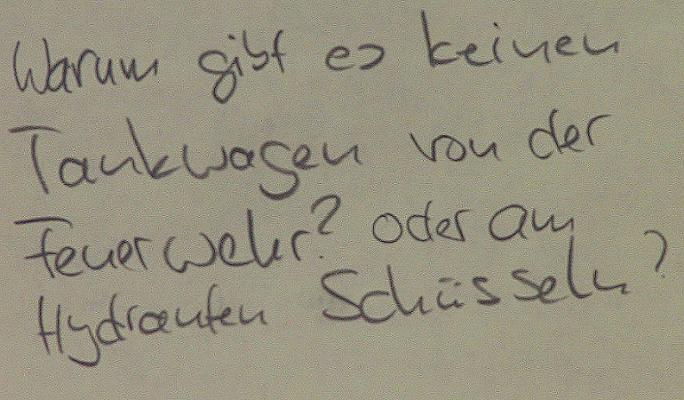 Warum gibt es keinen
Tankwagen von der
Feuerwehr? oder am
Hydranten Schüsseln?